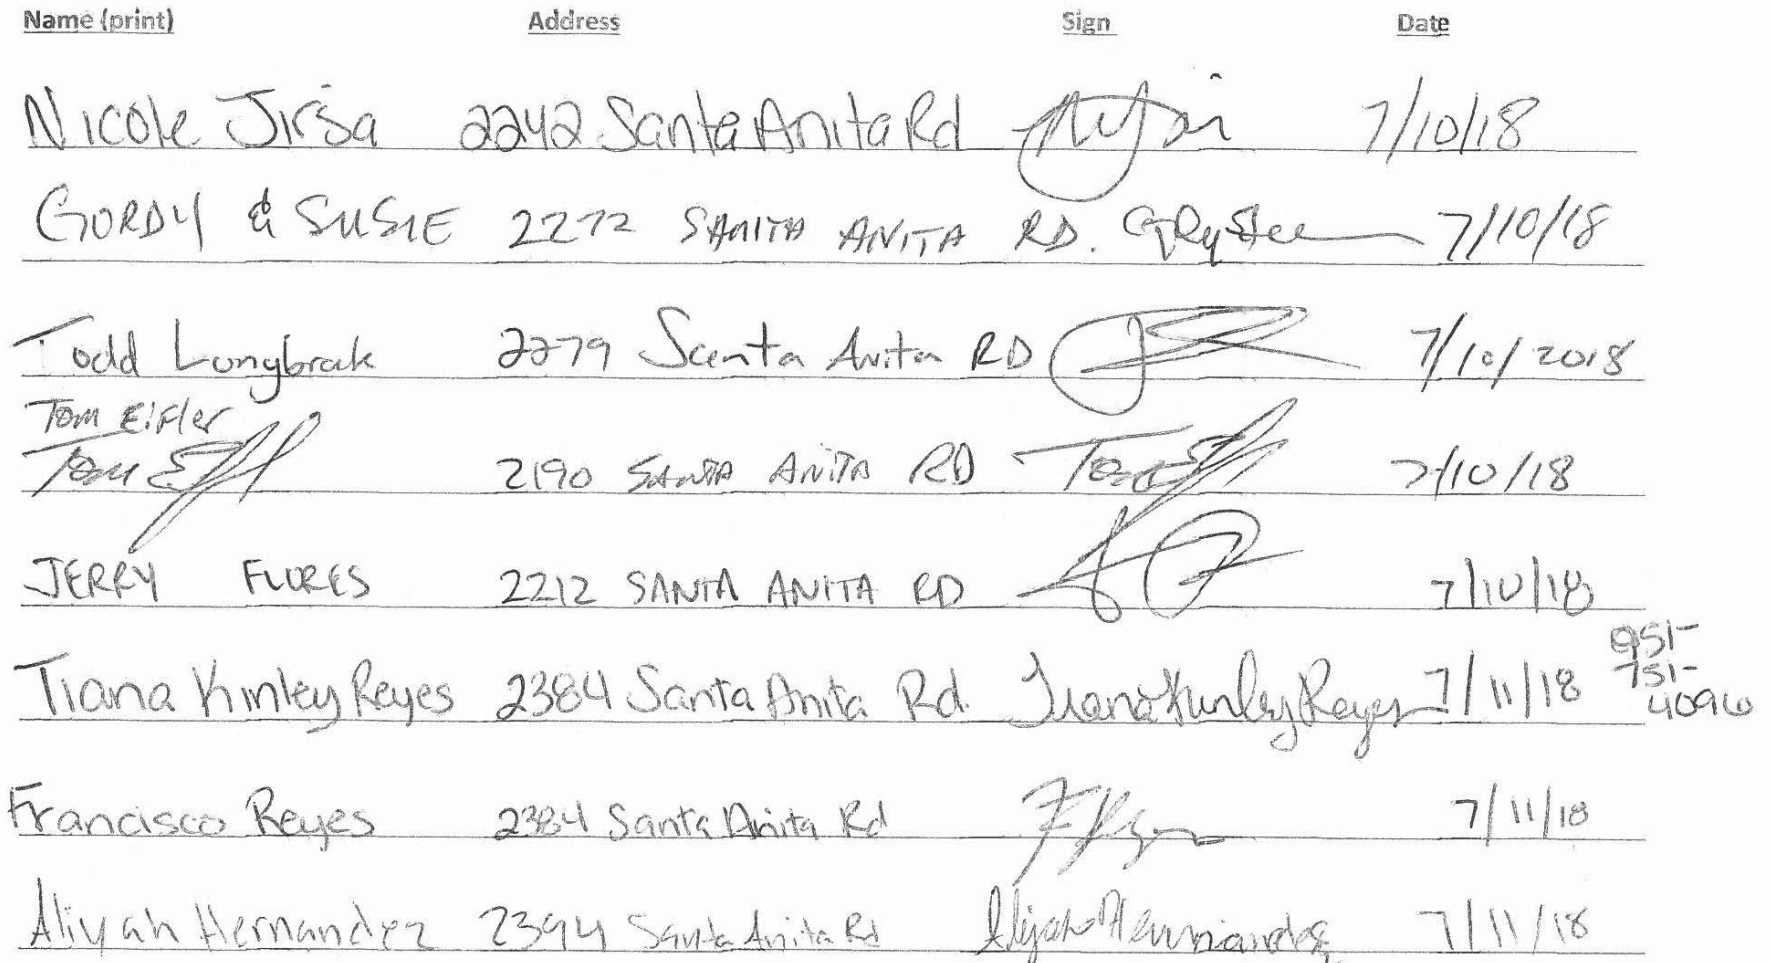 Name (print) Address Sign Date
Nicole Jirsa 2242 Santa Anita Rd 7/10/18
GORDY & SUSIE 2272 SANTA ANITA RD. 7/10/18
Todd Longbrak 2279 Santa Anita RD 7/10/2018
Tom Eifler
Tom 2190 SANTA ANITA RD Tom 7/10/18
JERRY FLORES 2212 SANTA ANITA RD 7/10/18
Tiana Kinley Reyes 2384 Santa Anita Rd. Tiana Kinley Reyes 7/11/18 951-
751-
4096
Francisco Reyes 2384 Santa Anita Rd 7/11/18
Aliyah Hernandez 2394 Santa Anita Rd Aliyah Hernandez 7/11/18